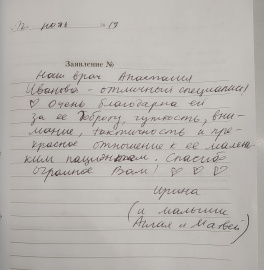 12 июня 19
Заявление №
Наш врач Анастасия
Ивановна - отличный специалист!
♡ Очень благодарна ей
за ее доброту, чуткость, вни-
мание, тактичность и пре-
красное отношение к ее малень-
ким пациентам. Спасибо
огромное Вам! ♡ ♡ ♡
Ирина
(и малыши
и Матвей)